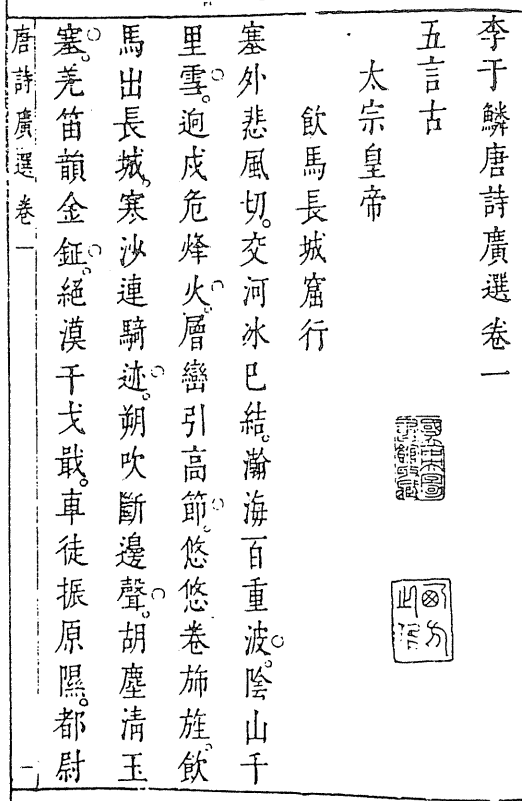 李于鱗唐詩廣選卷一
五言古
太宗皇帝
飲馬長城窟行
塞外悲風切。交河冰巳結。瀚海百重波。陰山千
里雪。迥戍危烽火。層巒引高節。悠悠卷斾旌。飲
馬出長城。寒沙連騎迹。朔吹斷邊聲。胡塵淸玉
塞。羌笛韻金鉦。絕漠干戈戢。車徒振原隰。都尉
唐詩廣選 卷一 一